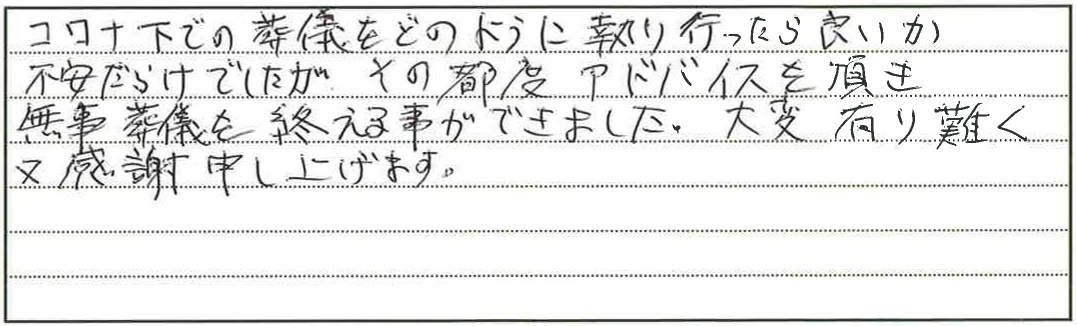 コロナ下での葬儀をどのように執り行ったら良いか
不安だらけでしたが その都度アドバイスを頂き
無事葬儀を終える事ができました。大変有り難く
又感謝申し上げます。